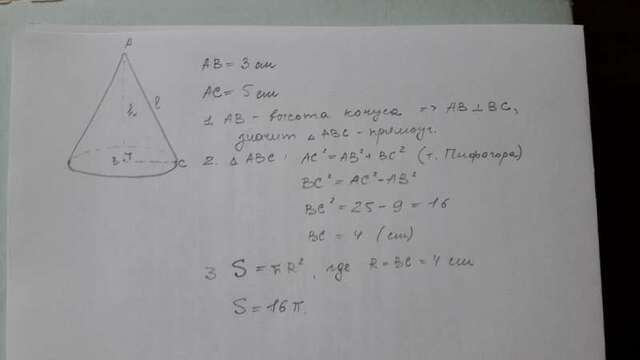 A
h
l
B
C
AB = 3 см
AC = 5 см
1. AB - высота конуса => AB ⊥ BC,
значит △ ABC - прямоуг.
2. △ ABC: AC² = AB² + BC² (т. Пифагора)
BC² = AC² - AB²
BC² = 25 - 9 = 16
BC = 4 (см)
3 S = πR², где R = BC = 4 см
S = 16π.